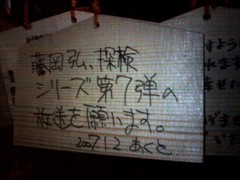 藤岡弘、探検
シリーズ第7弾の
放送を願います。
2007.12 あくと
ますよう